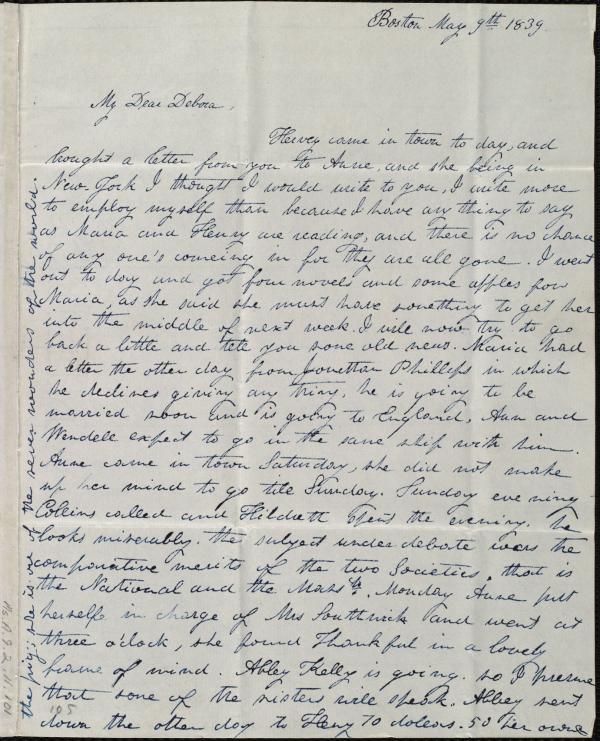 Boston May 9th 1839
My Dear Debora,
Hervey came in town to day, and
brought a letter from you to Anne, and she being in
New York I thought I would write to you, I write more
to employ myself than because I have any thing to say
as Maria and Henry are reading, and there is no chance
of any one's comeing in for they are all gone. I went
out to day and got four novels and some apples for
Maria, as she said she must have something to get her
into the middle of next week. I will now try to go
back a little and tell you some old news. Maria had
a letter the other day from Jonathan Phillips in which
he declines giving any thing, he is going to be
married soon and is going to England, Ann and
Wendell expect to go in the same ship with him.
Anne came in town Saturday, she did not make
up her mind to go till Sunday. Sunday evening
Collins called and Hildreth spent the evening. he
looks miserably. the subject under debate was the
comparative merits of the two Societies. that is
the National and the Masstts. Monday Anne put
herself in charge of Mrs Southwick and went at
three o'clock, she found Thankful in a lovely
frame of mind. Abby Kelly is going. so I presume
that some of the sisters will speak. Abbey sent
down the other day to Heny 70 dolars. 50 her own
the pig; she is one of the seven wonders of the world.
Ms.A.9.2.11.101